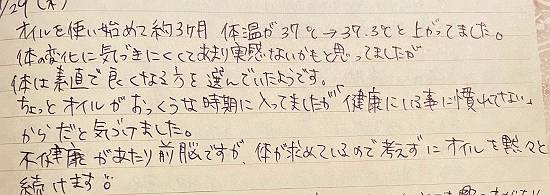 /29(木)
オイルを使い始めて約3ケ月 体温が37℃→37.3℃と上がってました。
体の変化に気づきにくくてあまり実感ないかもと思ってましたが
体は素直で良くなる方を選んでいたようです。
ちょっとオイルがおっくうな時期に入ってましたが「健康にいる事に慣れてない」
からだと気づけました。
不健康があたり前脳ですが、体が求めているので考えずにオイルを黙々と
続けます。